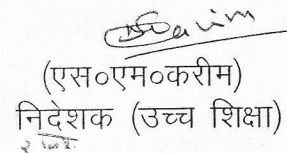 (एस०एम०करीम)
निदेशक (उच्च शिक्षा)